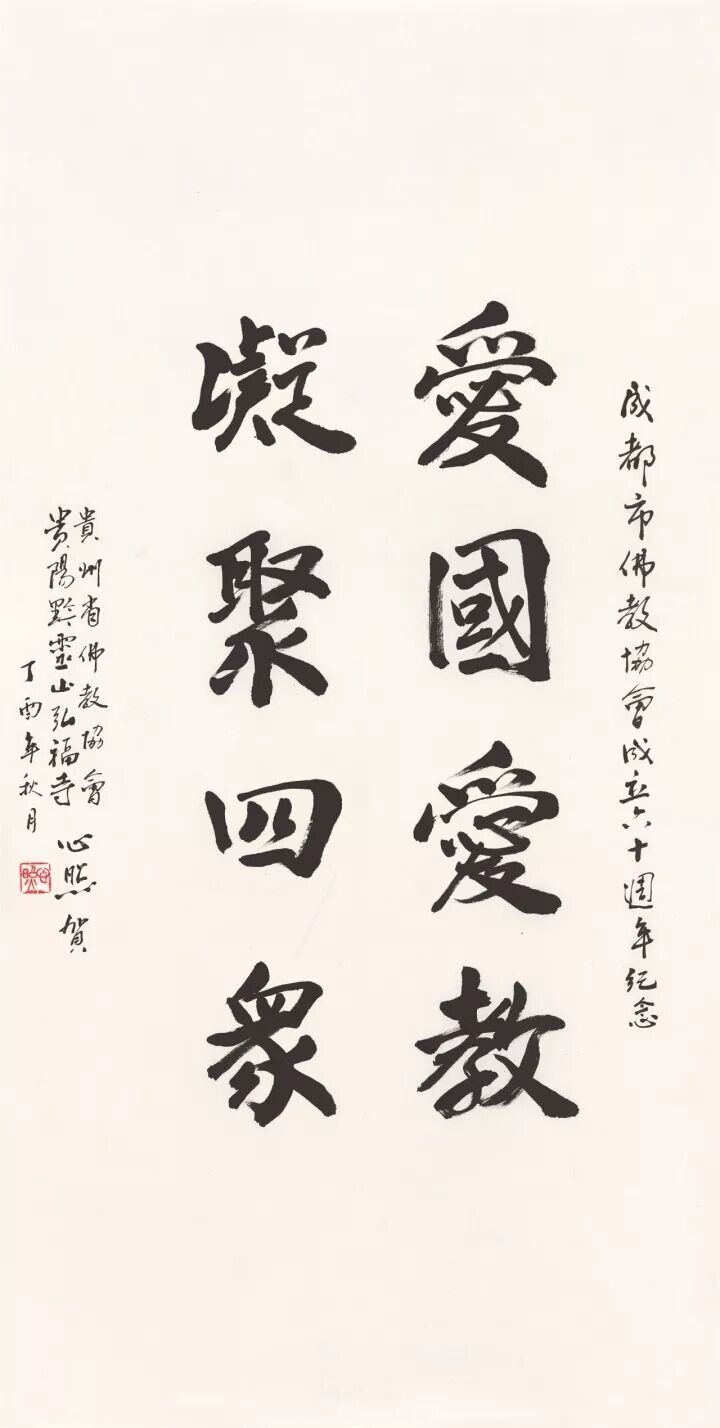 成都市佛教協會成立六十週年紀念
愛國愛教
凝聚四衆
貴州省佛教協會
貴陽黔靈山弘福寺 心照賀
丁酉年秋月